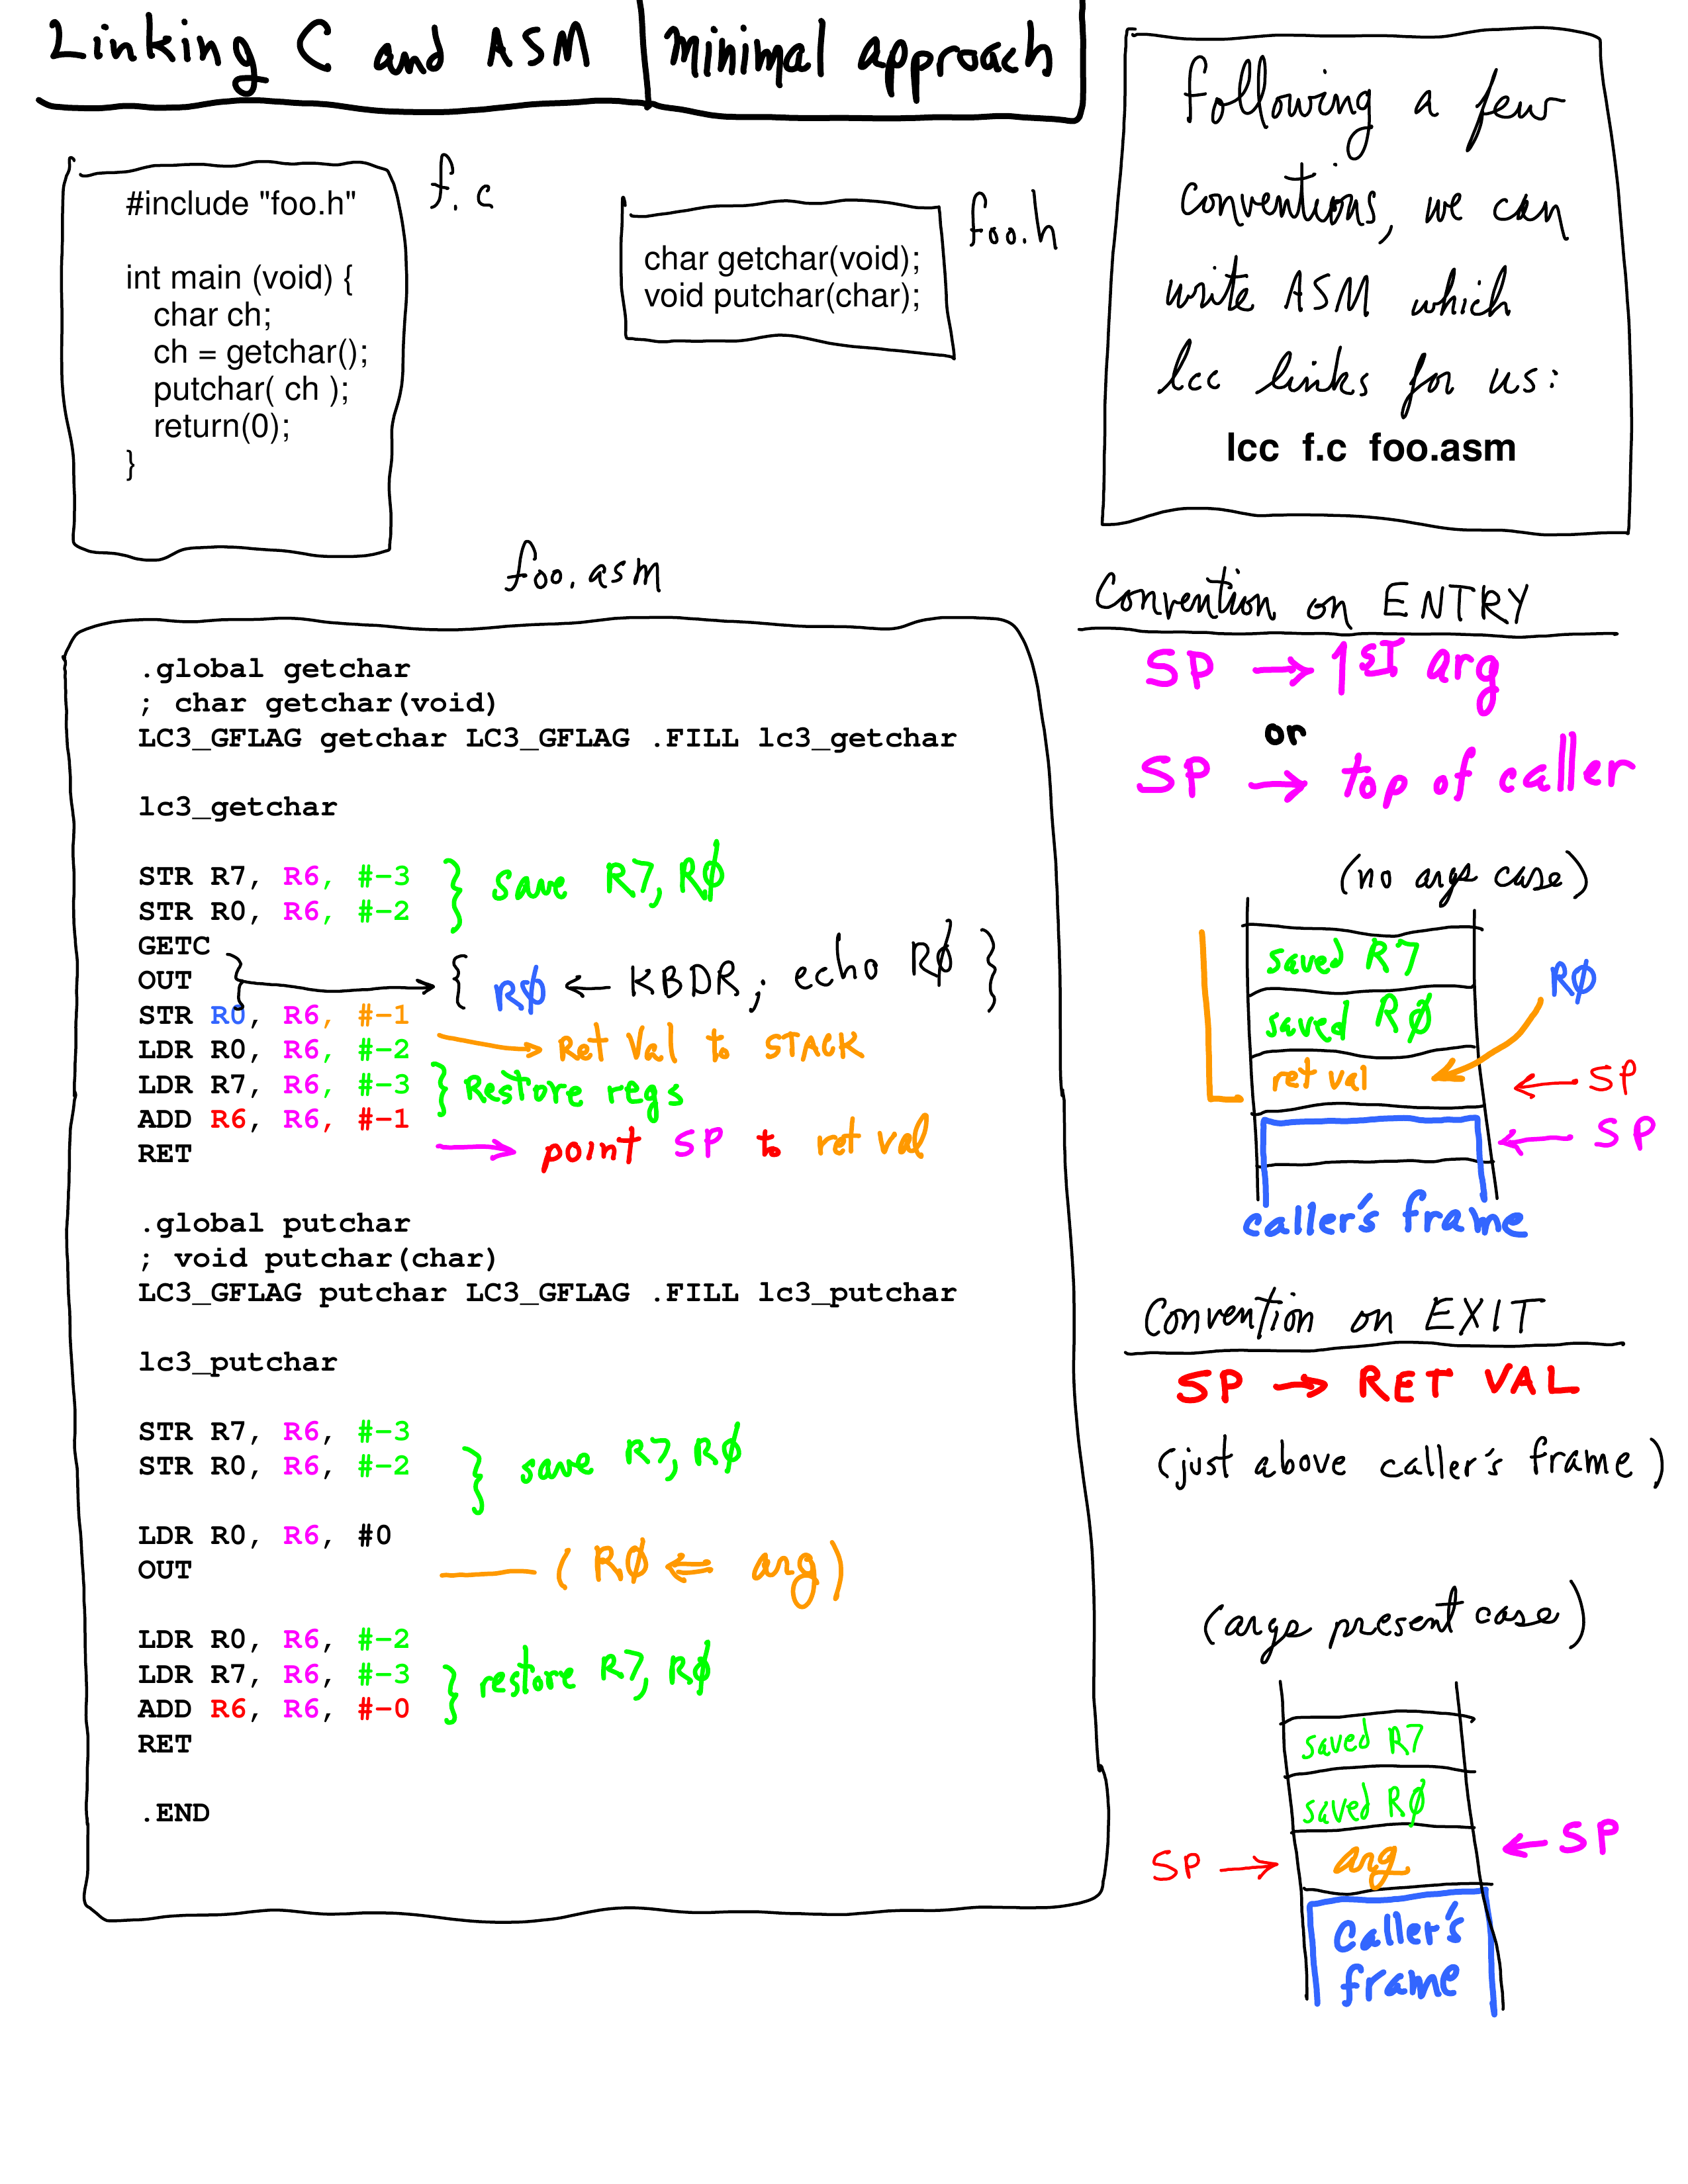 Linking C and ASM | minimal approach
f.c
#include "foo.h"
int main (void) {
char ch;
ch = getchar();
putchar( ch );
return(0);
}
foo.h
char getchar(void);
void putchar(char);
Following a few
conventions, we can
write ASM which
lcc links for us:
lcc f.c foo.asm
foo.asm
.global getchar
; char getchar(void)
LC3_GFLAG getchar LC3_GFLAG .FILL lc3_getchar
lc3_getchar
STR R7, R6, #-3
STR R0, R6, #-2
} save R7, RØ
GETC
OUT
} { RØ ← KBDR; echo RØ }
STR R0, R6, #-1
→ Ret Val to STACK
LDR R0, R6, #-2
LDR R7, R6, #-3
} Restore regs
ADD R6, R6, #-1
→ point SP to ret val
RET
.global putchar
; void putchar(char)
LC3_GFLAG putchar LC3_GFLAG .FILL lc3_putchar
lc3_putchar
STR R7, R6, #-3
STR R0, R6, #-2
} save R7, RØ
LDR R0, R6, #0
OUT
(RØ ⇐ arg)
LDR R0, R6, #-2
LDR R7, R6, #-3
} restore R7, RØ
ADD R6, R6, #-0
RET
.END
Convention on ENTRY
SP → 1ST arg
or
SP → top of caller
(no args case)
saved R7
saved RØ
RØ
ret val
← SP
← SP
caller's frame
Convention on EXIT
SP → RET VAL
(just above caller's frame)
(args present case)
saved R7
saved RØ
SP → arg ← SP
Caller's
frame